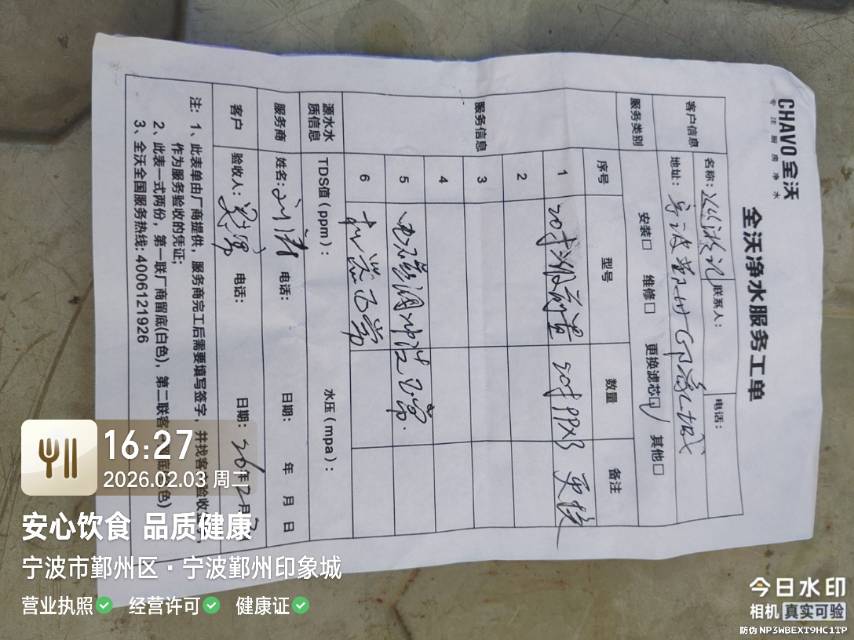 CHAVO全沃
专注厨房净水
全沃净水服务工单
客户信息
名称：
联系人：
电话：
地址：宁波鄞州印象城
服务类别
安装□ 维修□ 更换滤芯□ 其他□
服务信息
序号 型号 数量 备注
1 20寸 20寸PPX3 更换
2
3
4
5
6
源水水质信息
TDS值（ppm）： 水压（mpa）：
服务商 姓名： 电话： 日期： 年 月 日
客户 验收人： 电话： 日期：
注：1、此表单由厂商提供，服务商完工后需要填写签字，并找客户验收
作为服务验收的凭证；
2、此表一式两份，第一联厂商留底(白色)，第二联客 底 色）
3、全沃全国服务热线：4006121926
16:27
2026.02.03 周二
安心饮食 品质健康
宁波市鄞州区·宁波鄞州印象城
营业执照 经营许可 健康证
今日水印
相机 真实可验
防伪 NP3WBEXT9HC1TP